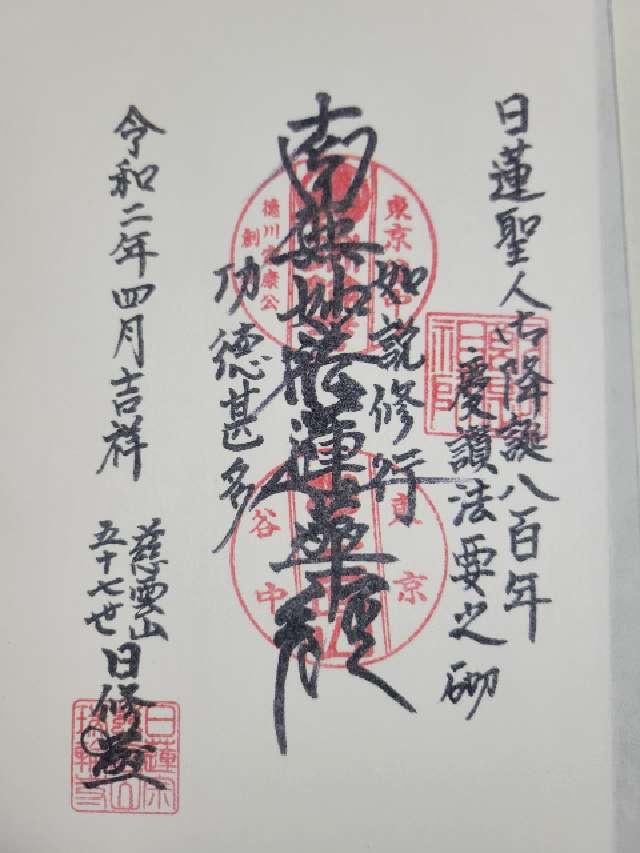 日蓮聖人御降誕八百年
慶讃法要之砌
如説修行
南無妙法蓮華経
功徳甚多
令和二年四月吉祥
慈雲山
五十七世
日修
東京谷中
徳川家康公
創
東京
谷中
日蓮宗